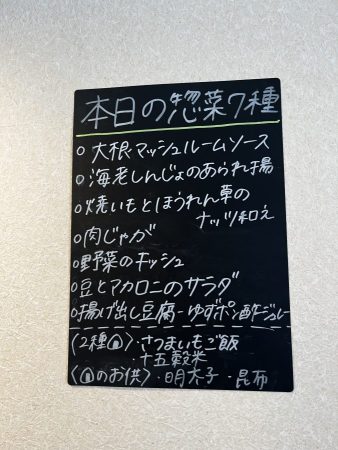 本日の惣菜7種
○大根マッシュルームソース
○海老しんじょのあられ揚
○焼いもとほうれん草の
ナッツ和え
○肉じゃが
○野菜のキッシュ
○豆とマカロニのサラダ
○揚げ出し豆腐-ゆずポン酢ジュレ-
〈2種🍙〉・さつまいもご飯
・十五穀米
〈🍙のお供〉・明太子・昆布